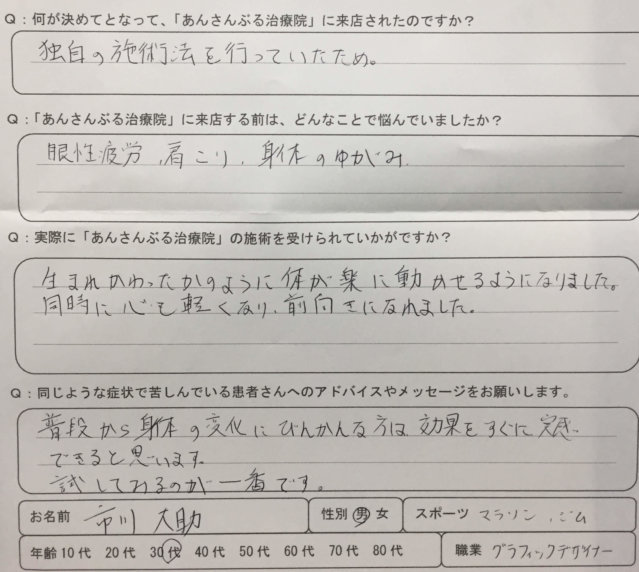 Q：何が決めてとなって、「あんさんぶる治療院」に来店されたのですか？
独自の施術法を行っていたため。
Q：「あんさんぶる治療院」に来店する前は、どんなことで悩んでいましたか？
眼性疲労，肩こり，身体のゆがみ
Q：実際に「あんさんぶる治療院」の施術を受けられていかがですか？
生まれかわったかのように体が楽に動かせるようになりました。
同時に心も軽くなり，前向きになれました。
Q：同じような症状で苦しんでいる患者さんへのアドバイスやメッセージをお願いします。
普段から身体の変化にびんかんな方は効果をすぐに実感
できると思います。
試してみるのが一番です。
お名前 市川 大助 性別 男 女 スポーツ マラソン，ジム
年齢 10代 20代 30代 40代 50代 60代 70代 80代 職業 グラフィックデザイナー